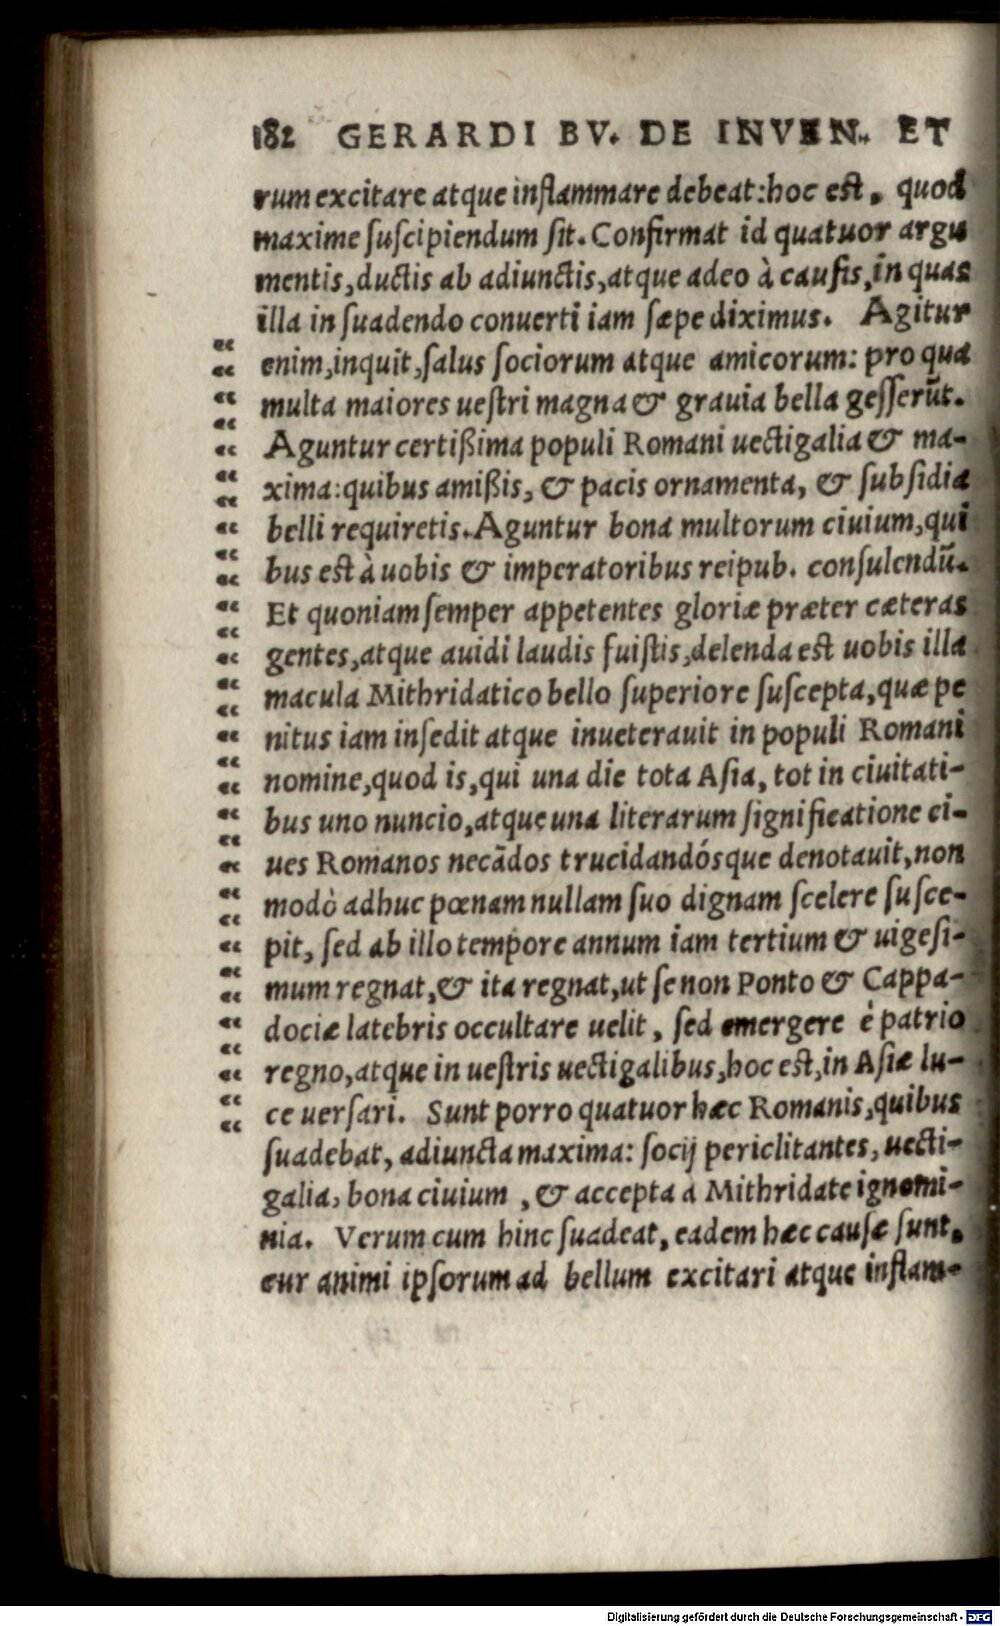 182 GERARDI BV. DE INVEN. ET
rum excitare atque inflammare debeat: hoc est, quod
maxime suscipiendum sit. Confirmat id quatuor argu
mentis, ductis ab adiunctis, atque adeo à causis, in quas
illa in suadendo conuerti iam sæpe diximus. Agitur
“ enim, inquit, salus sociorum atque amicorum: pro qua
“ multa maiores uestri magna & grauia bella gesserũt.
“ Aguntur certißima populi Romani uectigalia & ma-
“ xima: quibus amißis, & pacis ornamenta, & subsidia
“ belli requiretis. Aguntur bona multorum ciuium, qui
“ bus est à uobis & imperatoribus reipub. consulendũ.
“ Et quoniam semper appetentes gloriæ præter cæteras
“ gentes, atque auidi laudis fuistis, delenda est uobis illa
“ macula Mithridatico bello superiore suscepta, quæ pe
“ nitus iam insedit atque inueterauit in populi Romani
“ nomine, quod is, qui una die tota Asia, tot in ciuitati-
“ bus uno nuncio, atque una literarum significatione ci-
“ ues Romanos necãdos trucidandósque denotauit, non
“ modò adhuc pœnam nullam suo dignam scelere susce-
“ pit, sed ab illo tempore annum iam tertium & uigesi-
“ mum regnat, & ita regnat, ut se non Ponto & Cappa-
“ dociæ latebris occultare uelit, sed emergere è patrio
“ regno, atque in uestris uectigalibus, hoc est, in Asiæ lu-
“ ce uersari. Sunt porro quatuor hæc Romanis, quibus
suadebat, adiuncta maxima: socij periclitantes, uecti-
galia, bona ciuium, & accepta a Mithridate ignomi-
nia. Verum cum hinc suadeat, eadem hæc causæ sunt,
cur animi ipsorum ad bellum excitari atque inflam-
Digitalisierung gefördert durch die Deutsche Forschungsgemeinschaft - DFG